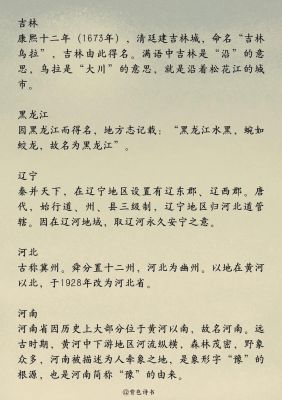 吉林
康熙十二年（1673年），清廷建吉林城，命名“吉林
乌拉”，吉林由此得名。满语中吉林是“沿”的意
思，乌拉是“大川”的意思，就是沿着松花江的城
市。
黑龙江
因黑龙江而得名，地方志记载：“黑龙江水黑，蜿如
蛟龙，故名为黑龙江”。
辽宁
秦并天下，在辽宁地区设置有辽东郡、辽西郡。唐
代，始行道、州、县三级制，辽宁地区归河北道管
辖。因在辽河地域，取辽河永久安宁之意。
河北
古称冀州。舜分置十二州，河北为幽州。以地在黄河
以北，于1928年改为河北省。
河南
河南省因历史上大部分位于黄河以南，故名河南。远
古时期，黄河中下游地区河流纵横，森林茂密，野象
众多，河南被描述为人牵象之地，是象形字“豫”的
根源，也是河南简称“豫”的由来。
@青色诗书